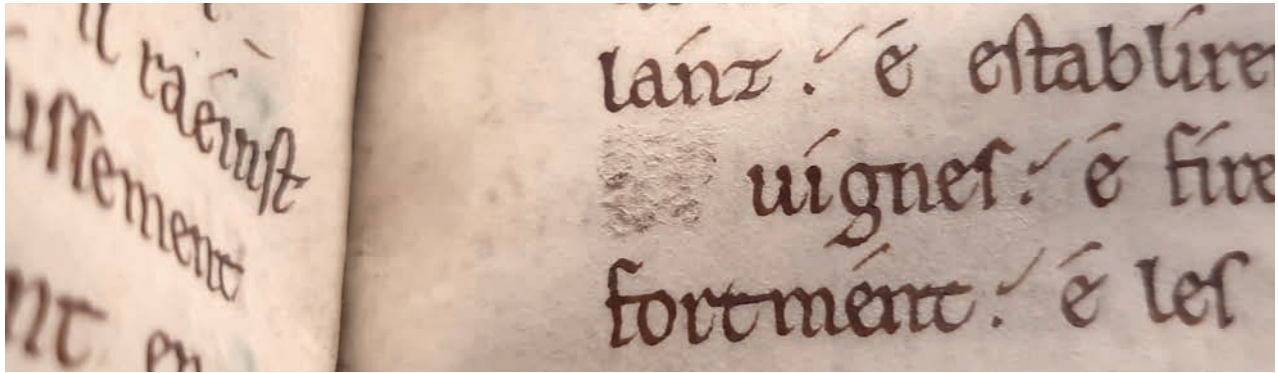 raéinst
ussement
nt en
lánz . é establire
uignes . é fire
fortmént . é les